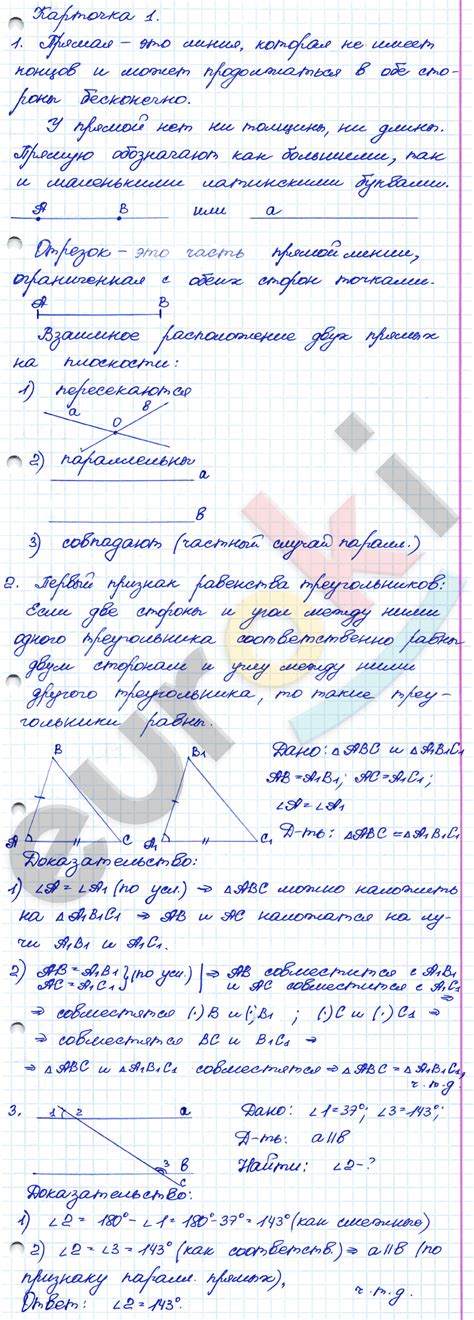 Карточка 1.
1. Прямая – это линия, которая не имеет
концов и может продолжаться в обе сто-
роны бесконечно.
У прямой нет ни толщины, ни длины.
Прямую обозначают как большими, так
и маленькими латинскими буквами.
A B или a
Отрезок – это часть прямой линии,
ограниченная с обеих сторон точками.
A B
Взаимное расположение двух прямых
на плоскости:
1) пересекаются
a O в
2) параллельны
a
в
3) совпадают (частный случай паралл.)
2. Первый признак равенства треугольников:
Если две стороны и угол между ними
одного треугольника соответственно равны
двум сторонам и углу между ними
другого треугольника, то такие треу-
гольники равны.
B B1 Дано: △ABC и △A1B1C1
AB=A1B1; AC=A1C1;
∠A=∠A1
A C A1 C1 Д-ть: △ABC=△A1B1C1
Доказательство:
1) ∠A=∠A1 (по усл.) ⇒ △ABC можно наложить
на △A1B1C1 ⇒ AB и AC наложатся на лу-
чи A1B1 и A1C1.
2) AB=A1B1 } (по усл.) | ⇒ AB совместится с A1B1
AC=A1C1 и AC совместится с A1C1 ⇒
⇒ совместятся (·)B и (·)B1 ; (·)C и (·)C1 ⇒
⇒ совместятся BC и B1C1 ⇒
⇒ △ABC и △A1B1C1 совместятся ⇒ △ABC=△A1B1C1,
ч.т.д.
3. 1 2 a Дано: ∠1=37°; ∠3=143°;
Д-ть: a∥в
3 в c Найти: ∠2-?
Доказательство:
1) ∠2 = 180° - ∠1 = 180° - 37° = 143° (как смежные)
2) ∠2 = ∠3 = 143° (как соответств.) ⇒ a∥в (по
признаку паралл. прямых),
ч.т.д.
Ответ: ∠2=143°.
euroki